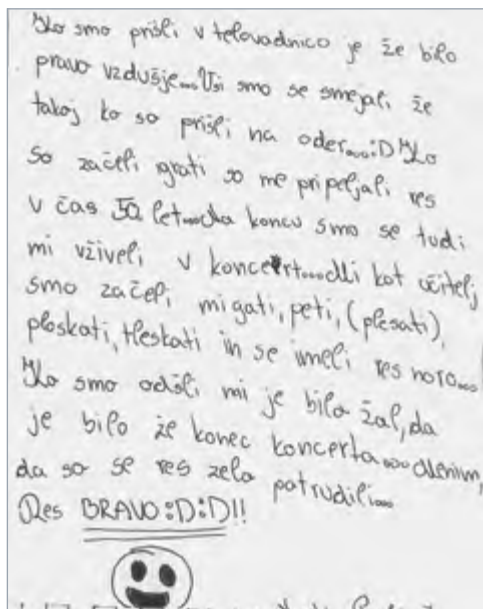 Ko smo prišli v telovadnico je že bilo
pravo vzdušje...Vsi smo se smejali že
takoj ko so prišli na oder...:D Ko
so začeli igrati so me pripeljali res
v čas 50 let...Na koncu smo se tudi
mi vživeli v koncert...Mi kot učitelj
smo začeli migati, peti, (plesati),
ploskati, tleskati in se imeli res noro...
Ko smo odšli mi je bilo žal, da
je bilo že konec koncerta...Menim,
da so se res zelo potrudili...
Res BRAVO :D:D!!